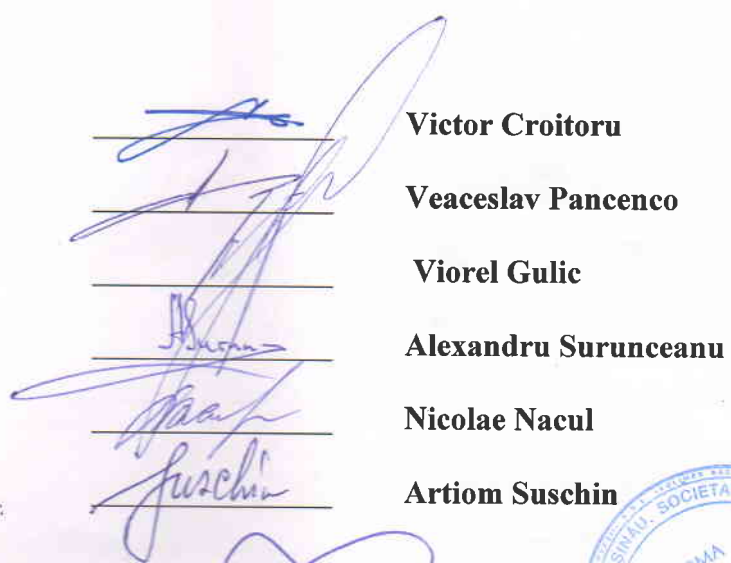 Victor Croitoru
Veaceslav Pancenco
Viorel Gulic
ASurun
Alexandru Surunceanu
Nicolae Nacul
Suschin
Artiom Suschin
SOCIETA